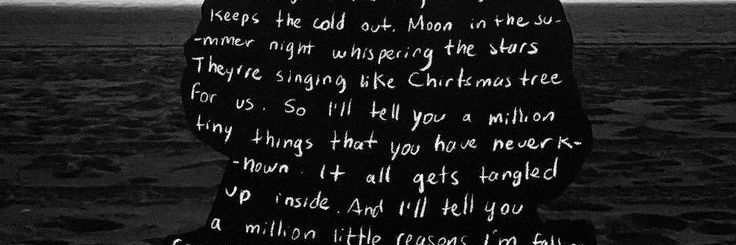 Keeps the cold out. Moon in the su-
-mmer night whispering the stars
They're singing like Chirtsmas tree
For us. So I'll tell you a million
tiny things that you have never k-
-nown. It all gets tangled
up inside. And I'll tell you
a million little reasons I'm